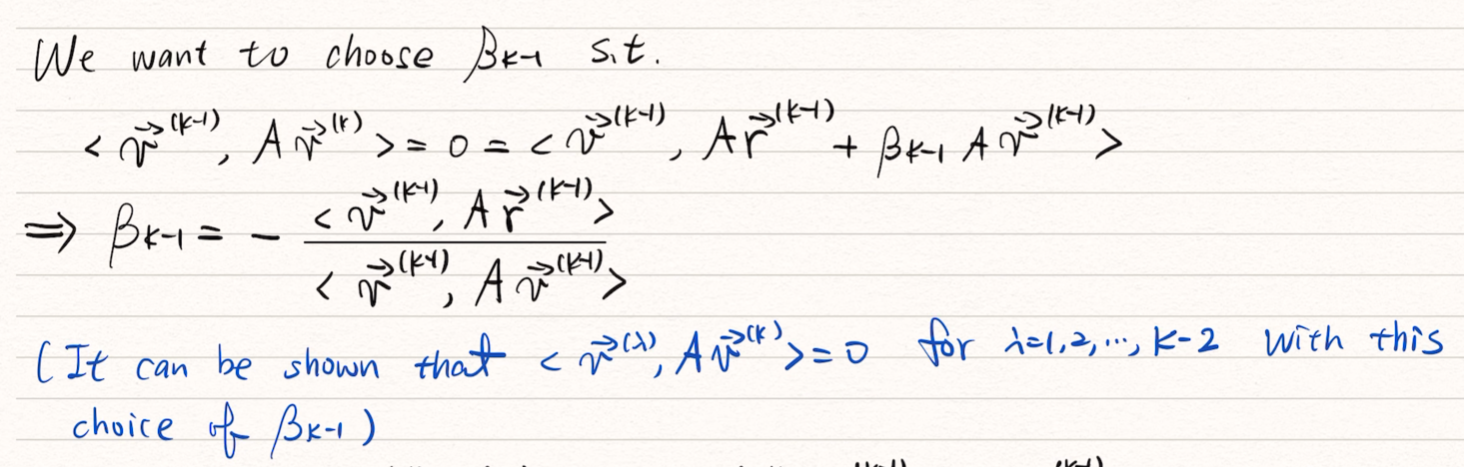 We want to choose βₖ₋₁ s.t.
< v⃗⁽ᵏ⁻¹⁾, A v⃗⁽ᵏ⁾ > = 0 = < v⃗⁽ᵏ⁻¹⁾, A r⃗⁽ᵏ⁻¹⁾ + βₖ₋₁ A v⃗⁽ᵏ⁻¹⁾ >
⇒ βₖ₋₁ = - < v⃗⁽ᵏ⁻¹⁾, A r⃗⁽ᵏ⁻¹⁾ > / < v⃗⁽ᵏ⁻¹⁾, A v⃗⁽ᵏ⁻¹⁾ >
(It can be shown that < v⃗^(λ), A v⃗⁽ᵏ⁾ > = 0 for λ=1,2,…, k-2 with this
choice of βₖ₋₁)